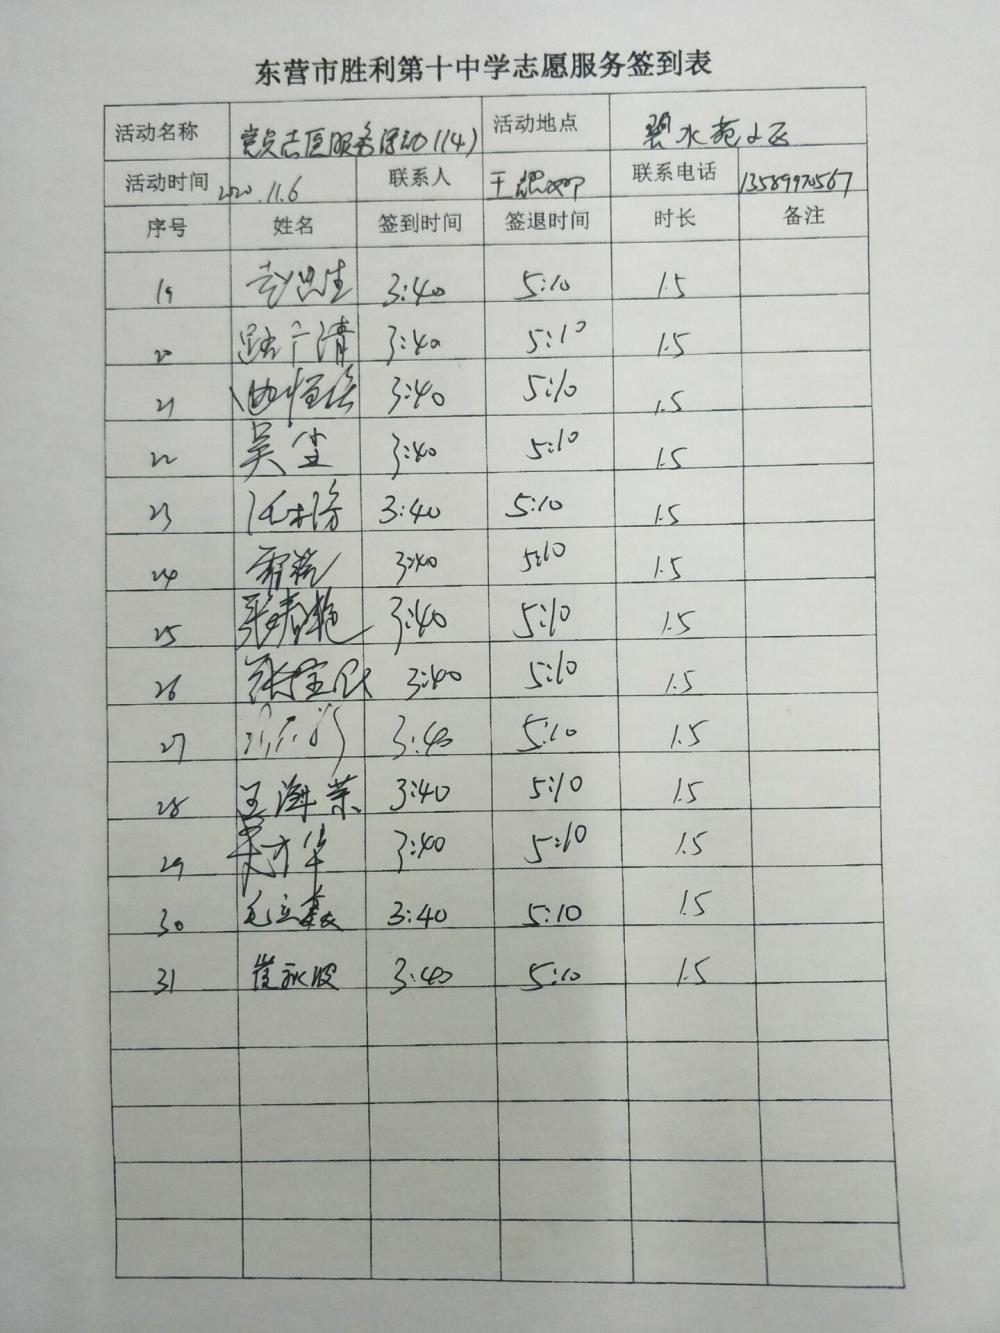 东营市胜利第十中学志愿服务签到表
活动名称 党员志愿服务活动(14) 活动地点 碧水苑小区
活动时间 2020.11.6 联系人 王 联系电话 13589970567
序号 姓名 签到时间 签退时间 时长 备注
19 3:40 5:10 1.5
20 路广清 3:40 5:10 1.5
21 3:40 5:10 1.5
22 吴 3:40 5:10 1.5
23 3:40 5:10 1.5
24 3:40 5:10 1.5
25 张春艳 3:40 5:10 1.5
26 张宝 3:40 5:10 1.5
27 3:40 5:10 1.5
28 王海荣 3:40 5:10 1.5
29 才华 3:40 5:10 1.5
30 毛立森 3:40 5:10 1.5
31 崔永波 3:40 5:10 1.5